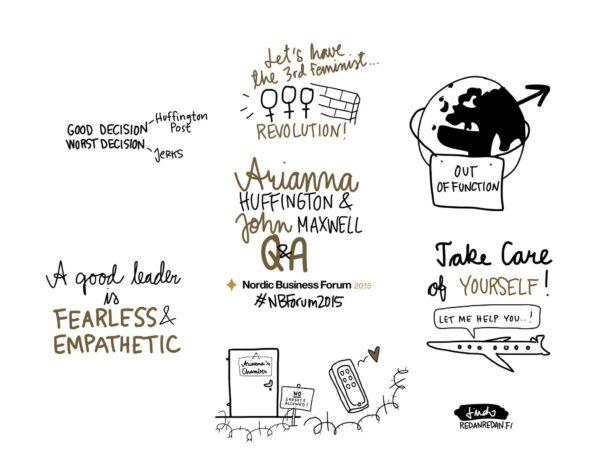 Let's have
the 3rd Feminist...
REVOLUTION!
GOOD DECISION
Huffington
Post
WORST DECISION
JERKS
OUT
OF FUNCTION
Arianna
HUFFINGTON &
John MAXWELL
Q&A
Nordic Business Forum 2015
#NBForum2015
A good leader
is
FEARLESS &
EMPATHETIC
Take Care
of YOURSELF!
LET ME HELP YOU..!
Arianna's
Chamber
NO
GADGETS
ALLOWED!
REDANREDAN.FI